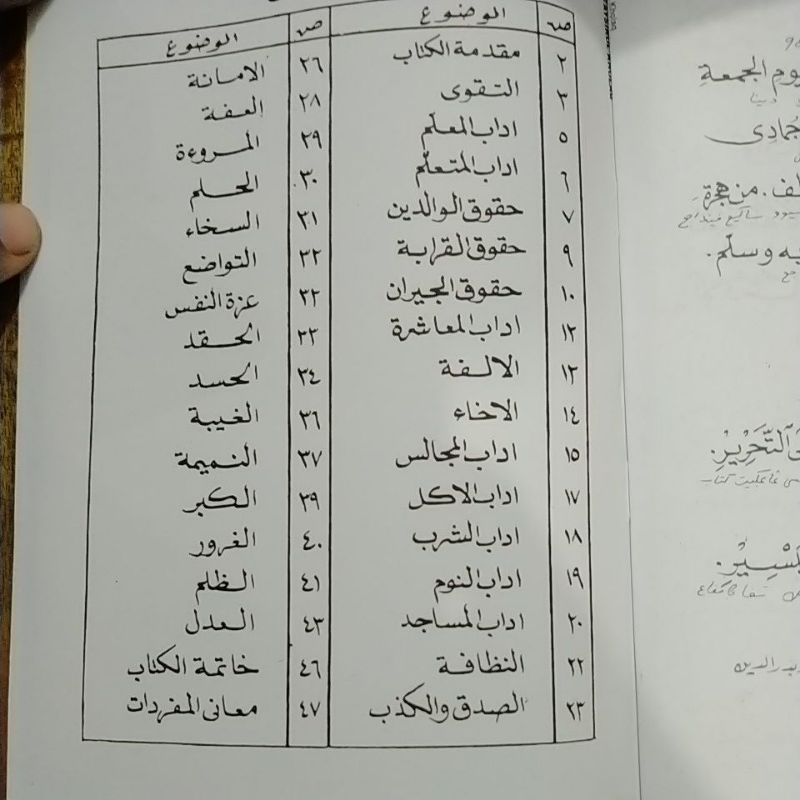 ص الموضوع ص الموضوع
٢ مقدمة الكتاب ٢٦ الامانة
٣ التقوى ٢٨ العفة
٥ اداب المعلّم ٢٩ المروءة
٦ اداب المتعلّم ٣٠ الحلم
٧ حقوق الوالدين ٣١ السخاء
٩ حقوق القرابة ٣٢ التواضع
١٠ حقوق الجيران ٣٢ عزة النفس
١٢ اداب المعاشرة ٣٣ الحقد
١٣ الالفة ٣٤ الحسد
١٤ الاخاء ٣٦ الغيبة
١٥ اداب المجالس ٣٧ النميمة
١٧ اداب الاكل ٣٩ الكبر
١٨ اداب الشرب ٤٠ الغرور
١٩ اداب النوم ٤١ الظلم
٢٠ اداب المساجد ٤٣ العدل
٢٢ النظافة ٤٦ خاتمة الكتاب
٢٣ الصدق والكذب ٤٧ معانى المفردات
يوم الجمعةِ
جُمادِى
من هجرةِ
وسلّم.
التَّحْرِيْرِ.